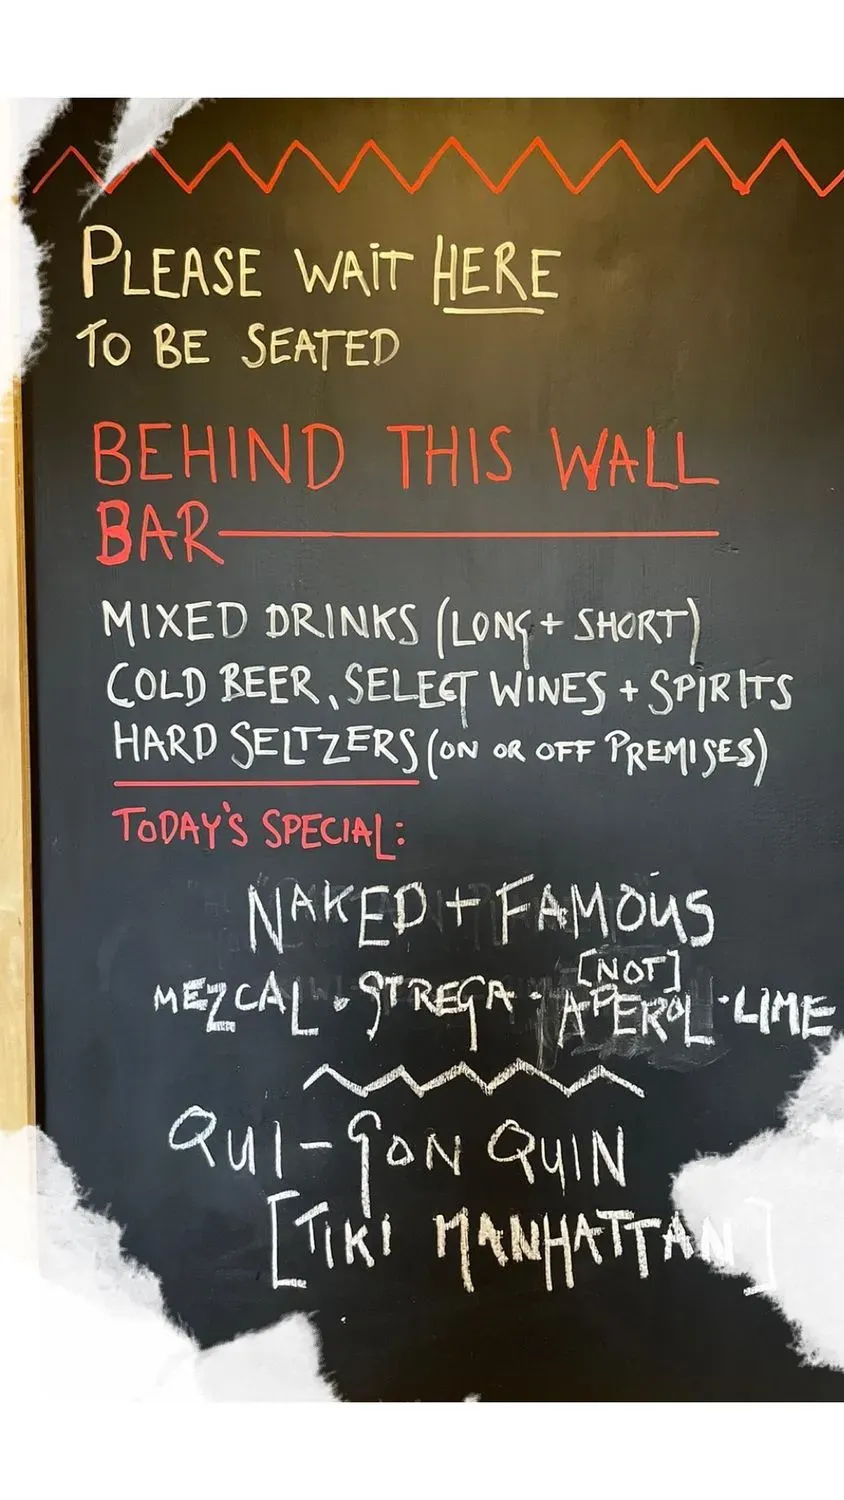 PLEASE WAIT HERE
TO BE SEATED
BEHIND THIS WALL
BAR
MIXED DRINKS (LONG + SHORT)
COLD BEER, SELECT WINES + SPIRITS
HARD SELTZERS (ON OR OFF PREMISES)
TODAY'S SPECIAL:
NAKED + FAMOUS
[NOT]
MEZCAL · STREGA · APEROL · LIME
QUI-GON QUIN
[TIKI MANHATTAN]